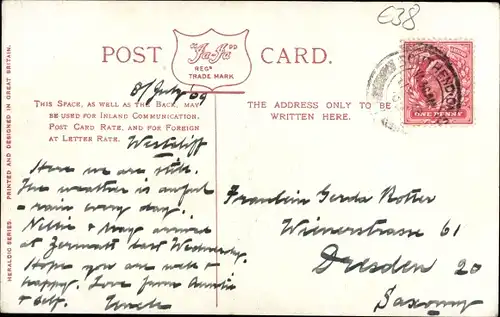 €38
POST
"Ja-Ja"
REGD
TRADE MARK
CARD.
8/July 09
THIS SPACE, AS WELL AS THE BACK, MAY
BE USED FOR INLAND COMMUNICATION,
POST CARD RATE, AND FOR FOREIGN
AT LETTER RATE.
THE ADDRESS ONLY TO BE
WRITTEN HERE.
ONE PENNY
HERALDIC SERIES. PRINTED AND DESIGNED IN GREAT BRITAIN.
Westcliff
Here we are still.
The weather is awful
- rain every day.
Nellie & May arrived
at Zermatt last Wednesday.
Hope you are well &
happy. Love from Auntie
& Self. Uncle
Fraulein Gerda Rotter
Wienerstrasse 61
Dresden 20
Saxony